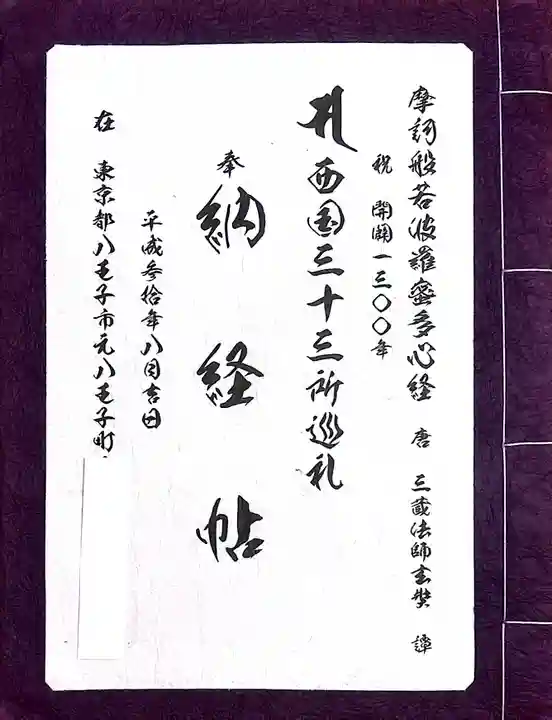 摩訶般若波羅蜜多心経 唐 三蔵法師玄奘 譚
祝 開闢一三〇〇年
西国三十三所巡礼
奉 納経帖
平成参拾年八月吉日
在 東京都八王子市元八王子町